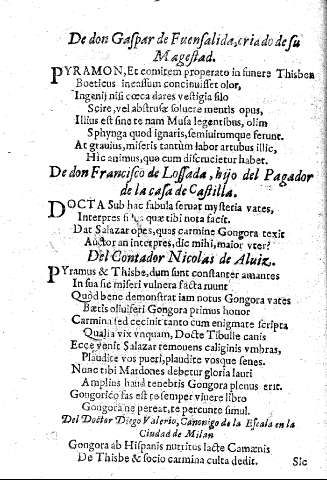 De don Gaspar de Fuensalida, criado de su
Magestad.
PYRAMON, Et comitem properato in funere Thisben
Boeticus incassum concinuisset olor,
Ingenij nisi coeca dares vestigia filo
Scire, vel abstrusæ soluere mentis opus,
Illius est sine te nam Musa legentibus, olim
Sphynga quod ignaris, semiuirumque ferunt.
At grauius, miseris tantùm labor artubus illic,
Hic animus, quo cum discrucietur habet.
De don Francisco de Lossada, hijo del Pagador
de la casa de Castilla.
DOCTA Sub hac fabula feruat mysteria vates,
Interpres quæ tibi nota facit.
Dat Salazar opes, quas carmine Gongora texit
Auctor an interpres, dic mihi, maior vter?
Del Contador Nicolas de Aluiz.
Pyramus & Thisbe, dum sunt constanter amantes
In sua sic miseri vulnera facta ruunt
Quòd bene demonstrat iam notus Gongora vates
Bætis oliuiferi Gongora primus honor
Carmina sed cecinit tanto cum enigmate scripta
Qualia vix vnquam, Docte Tibulle canis
Ecce venit Salazar remouens caliginis vmbras,
Plaudite vos pueri, plaudite vosque senes.
Nunc tibi Mardones debetur gloria lauri
Amplius haud tenebris Gongora plenus erit.
Gongorico fas est te semper viuere libro
Gongora ne pereat, te pereunte simul.
Del Doctor Diego Valerio, Canonigo de la Escala en la
Ciudad de Milan
Gongora ab Hispanis nutritus lacte Camœnis
De Thisbe & socio carmina culta dedit.
Sic